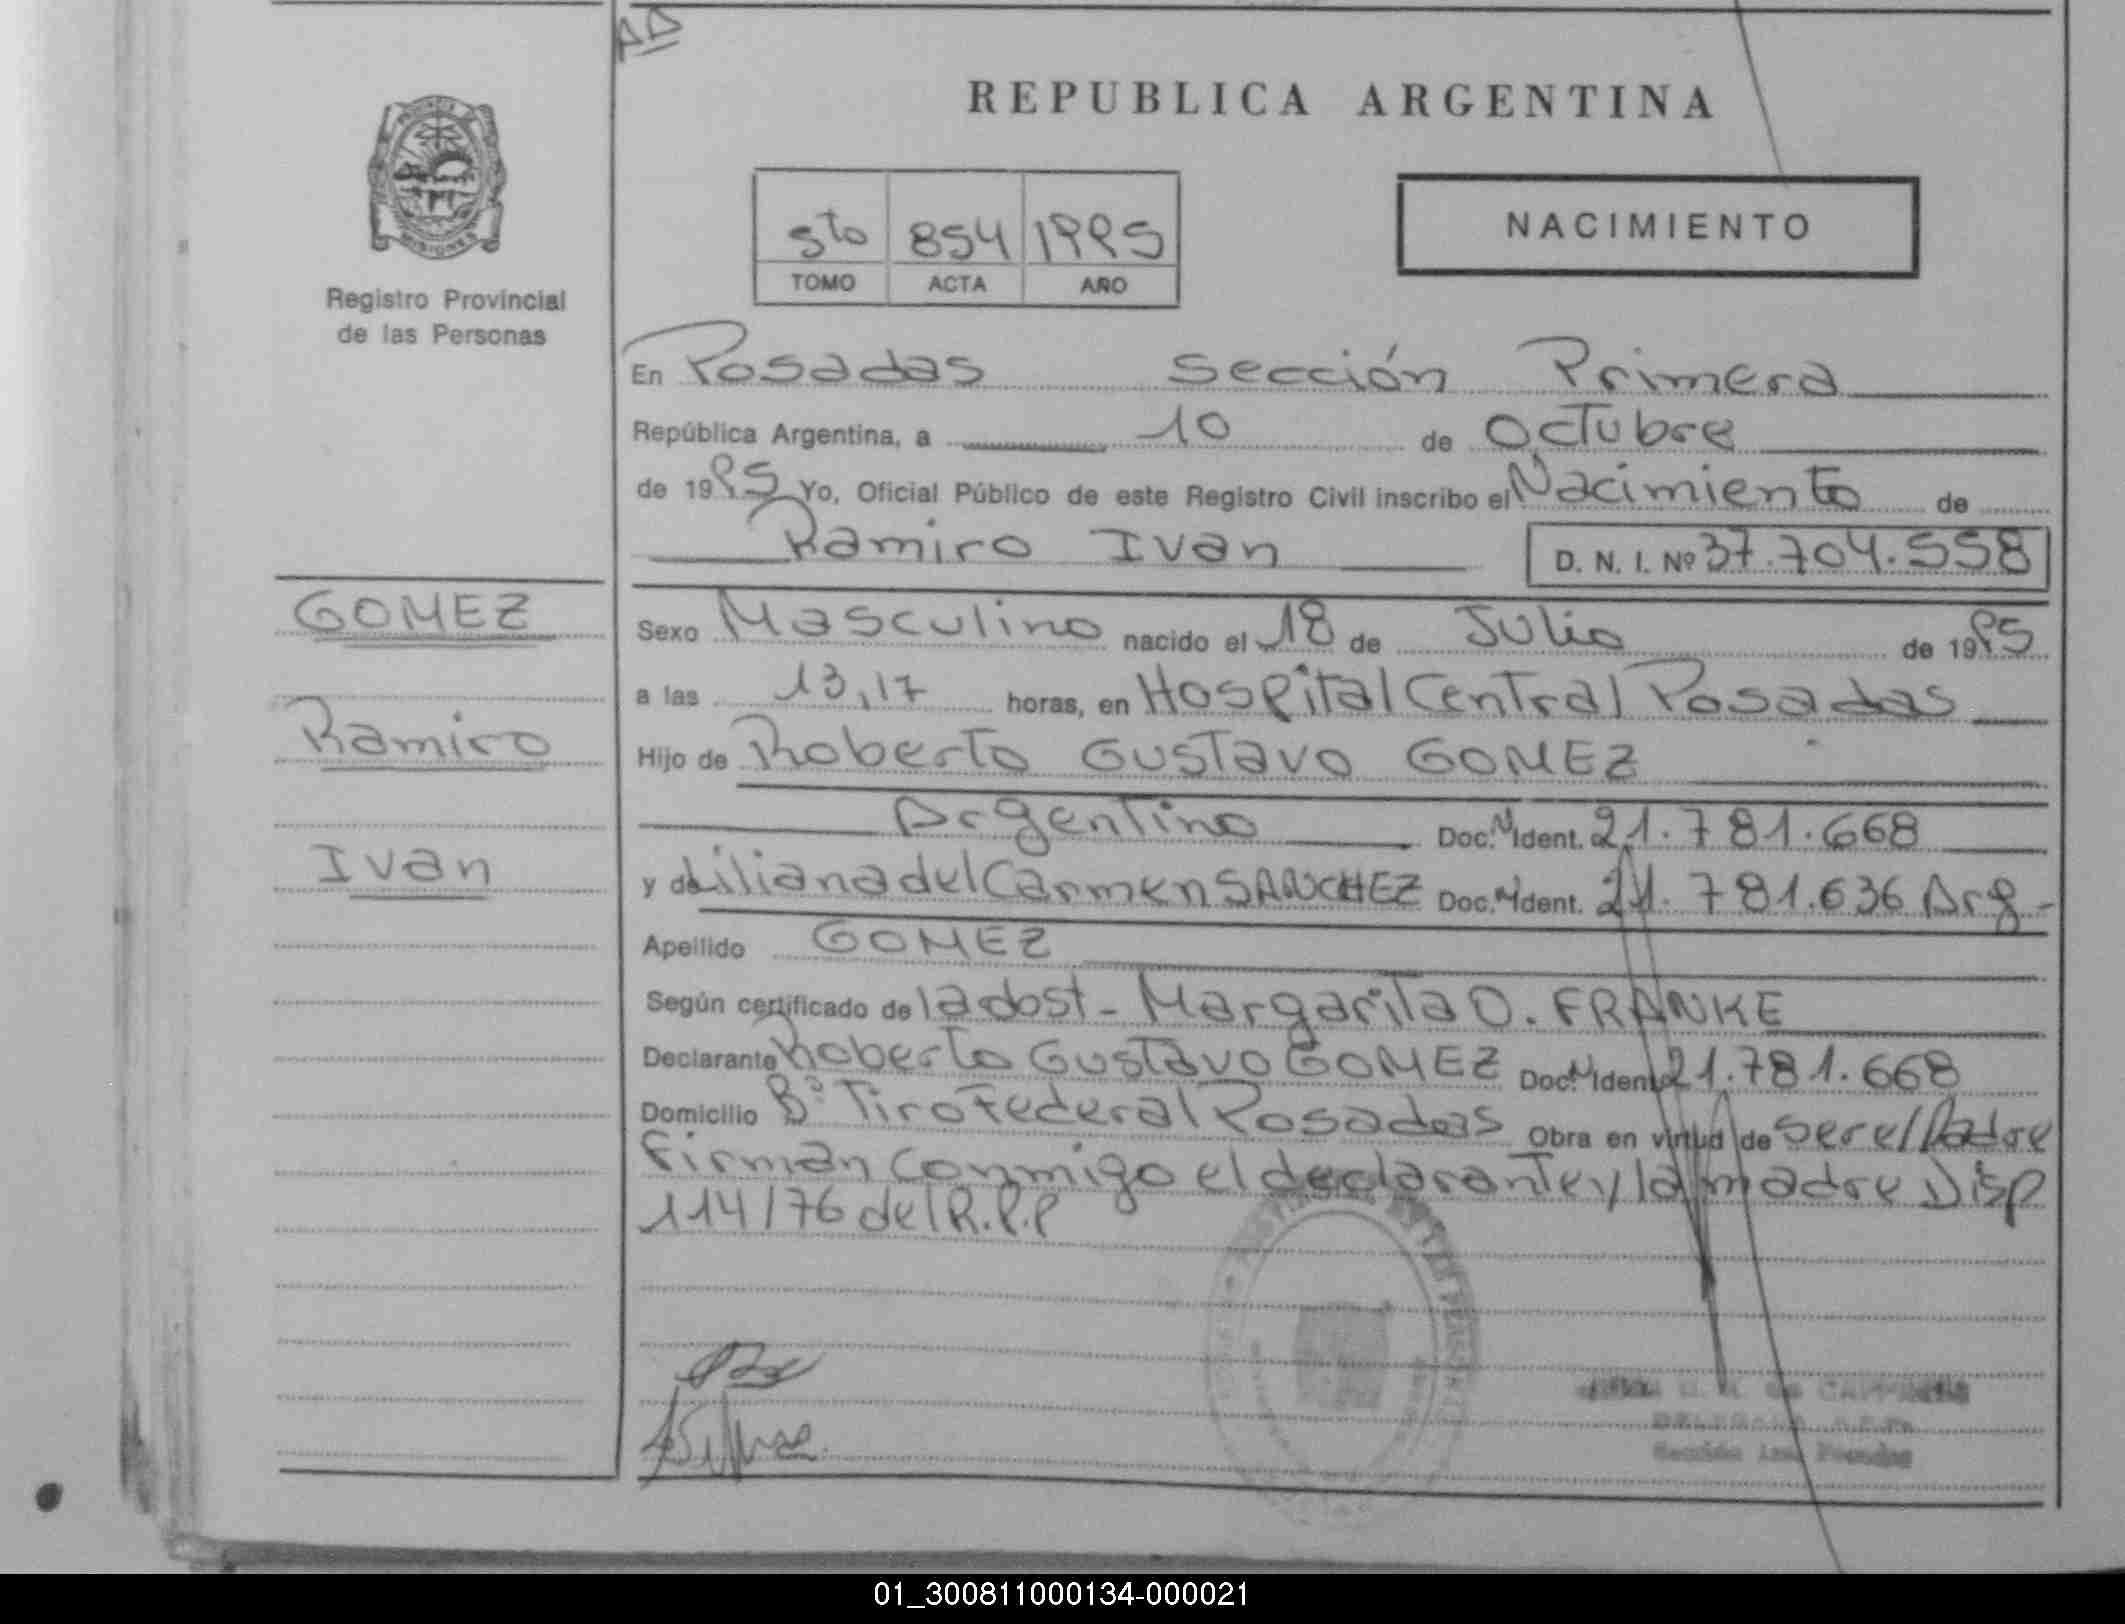 AD
REPUBLICA ARGENTINA
PROVINCIA
MISIONES
Registro Provincial
de las Personas
5to 854 1995
TOMO ACTA AÑO
NACIMIENTO
En Posadas Sección Primera
República Argentina, a 10 de Octubre
de 1995 Yo, Oficial Público de este Registro Civil inscribo el Nacimiento de
Ramiro Ivan D. N. I. Nº 37.704.558
GOMEZ
Ramiro
Ivan
Sexo Masculino nacido el 18 de Julio de 1995
a las 13,17 horas, en Hospital Central Posadas
Hijo de Roberto Gustavo GOMEZ
Argentino Doc. N Ident. 21.781.668
y de Liliana del Carmen SANCHEZ Doc. N Ident. 21.781.636 Arg-
Apellido GOMEZ
Según certificado de la obst- Margarita O. FRANKE
Declarante Roberto Gustavo GOMEZ Doc. N Ident. 21.781.668
Domicilio Bº Tiro Federal Posadas Obra en virtud de ser el Padre
Firman conmigo el declarante y la madre Disp
114/76 del R.P.P
01_300811000134-000021